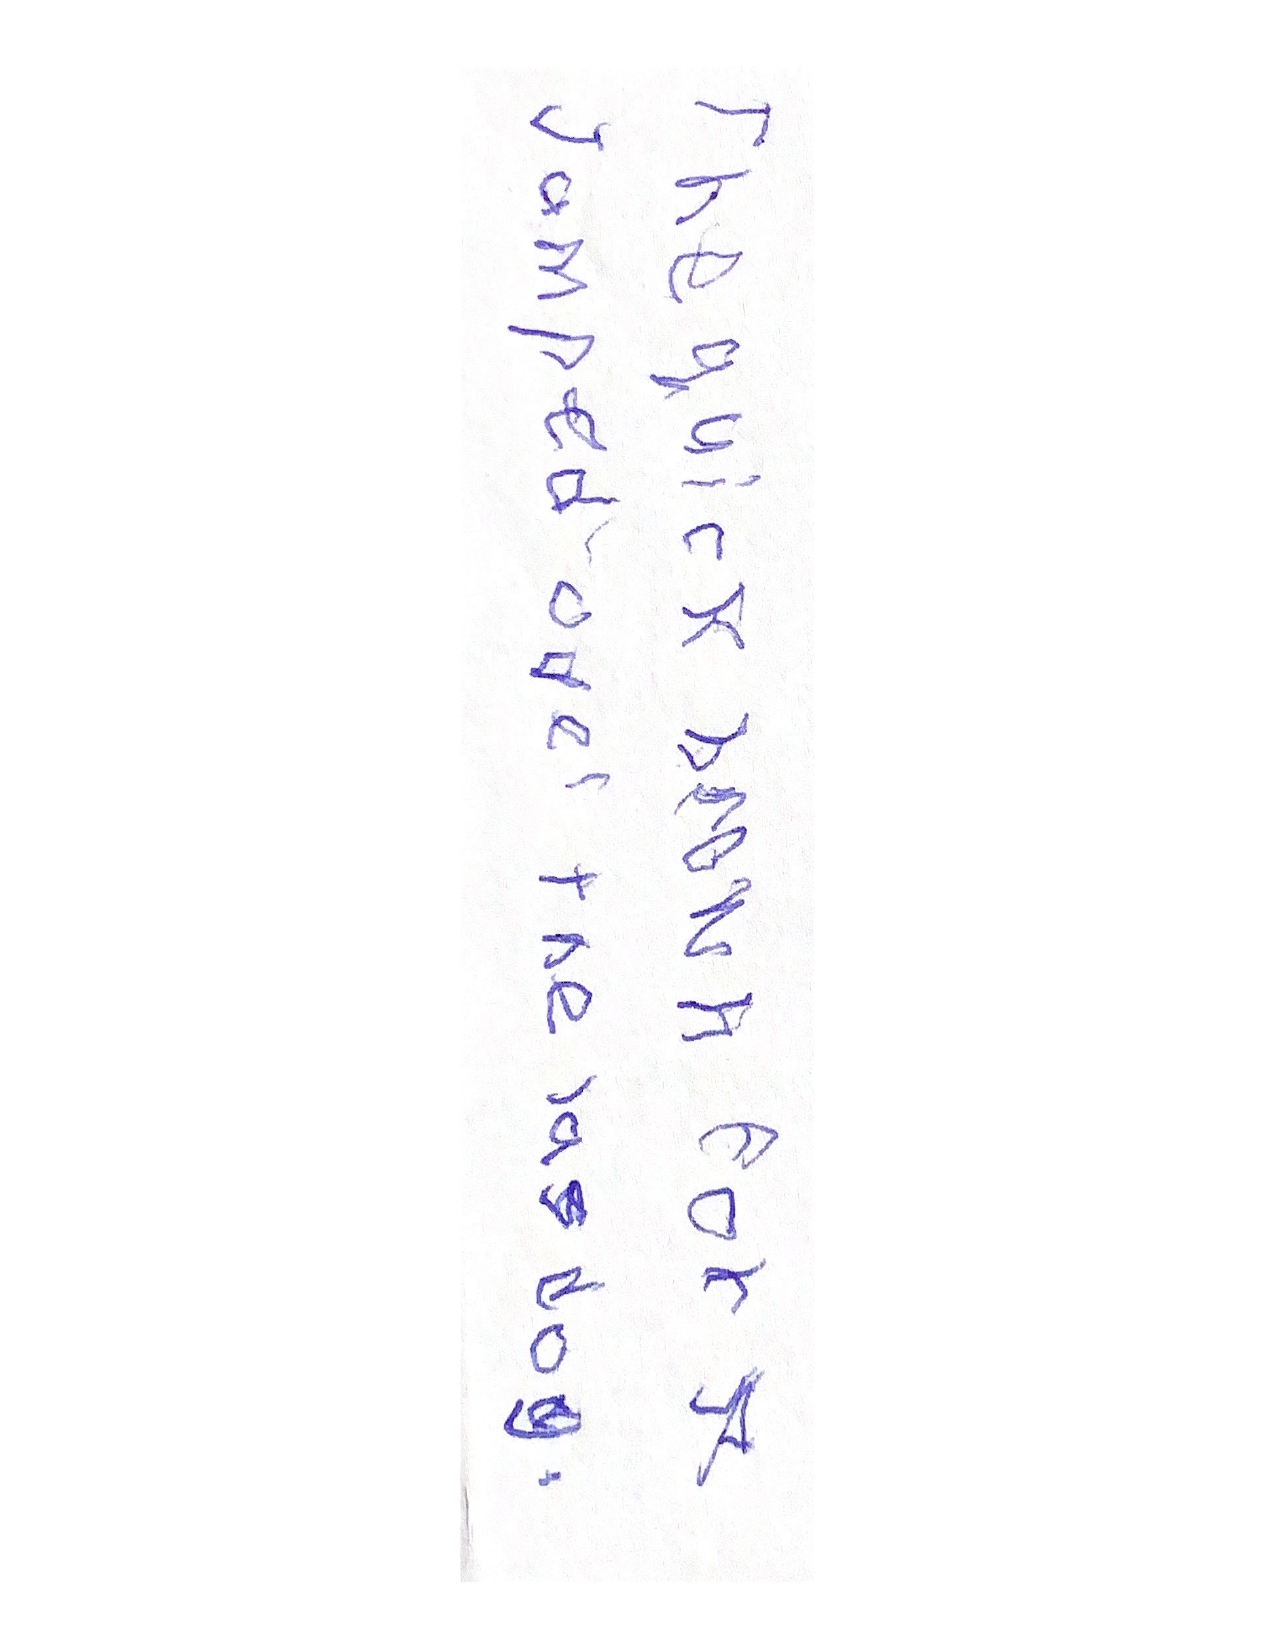 The quick brown fox
Jamped over the las dog.